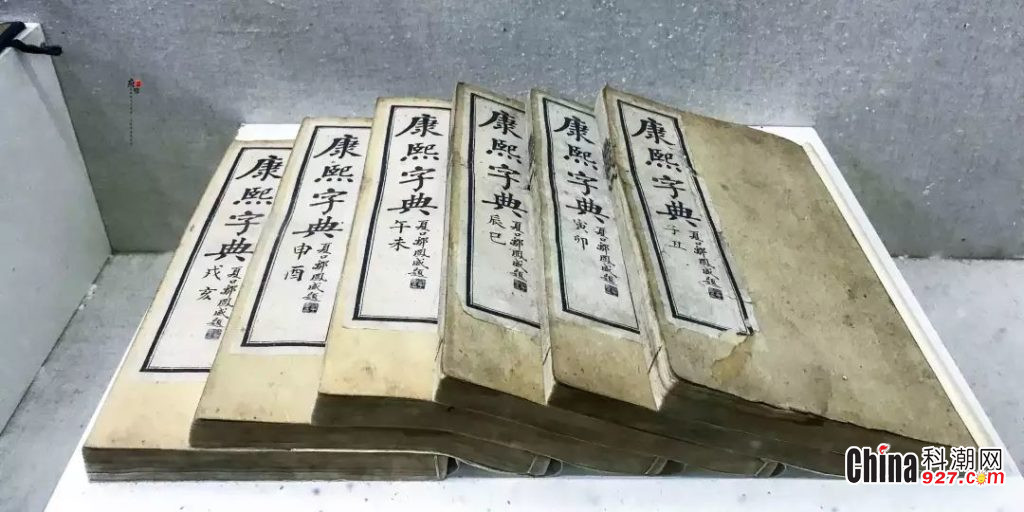 康熙字典
子丑
夏口鄭鳳威題
康熙字典
寅卯
夏口鄭鳳威題
康熙字典
辰巳
夏口鄭鳳威題
康熙字典
午未
夏口鄭鳳威題
康熙字典
申酉
夏口鄭鳳威題
康熙字典
戌亥
夏口鄭鳳威題
China科潮网
927.com